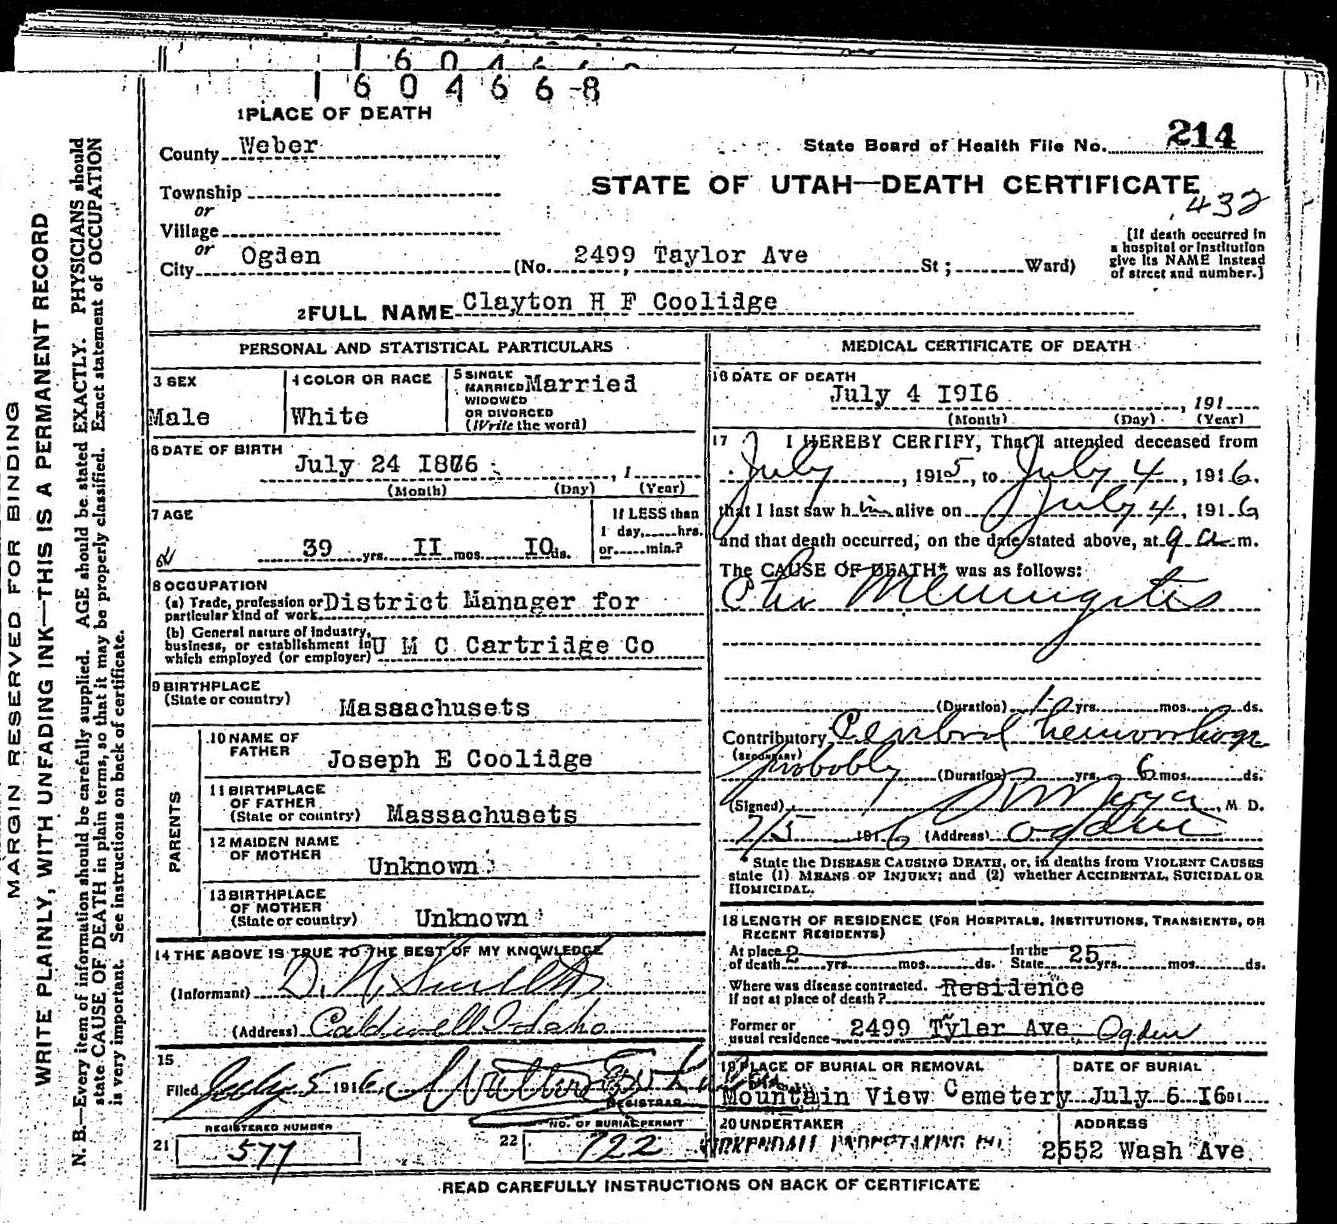 1 6 0 4 6 6 8
1 PLACE OF DEATH
County Weber
State Board of Health File No. 214
Township
STATE OF UTAH—DEATH CERTIFICATE
432
or
Village
or
City Ogden (No. 2499 Taylor Ave St; Ward)
[If death occurred in
a hospital or institution
give its NAME instead
of street and number.]
2 FULL NAME Clayton H F Coolidge
PERSONAL AND STATISTICAL PARTICULARS
3 SEX
Male
4 COLOR OR RACE
White
5 SINGLE
MARRIED
WIDOWED
OR DIVORCED
(Write the word)
Married
6 DATE OF BIRTH
July 24 I876 , 1
(Month) (Day) (Year)
7 AGE
39 yrs. II mos. IO ds.
If LESS than
1 day, hrs.
or min.?
8 OCCUPATION
(a) Trade, profession or
particular kind of work
District Manager for
(b) General nature of industry,
business, or establishment in
which employed (or employer)
U M C Cartridge Co
9 BIRTHPLACE
(State or country)
Massachusets
PARENTS
10 NAME OF
FATHER
Joseph E Coolidge
11 BIRTHPLACE
OF FATHER
(State or country)
Massachusets
12 MAIDEN NAME
OF MOTHER
Unknown
13 BIRTHPLACE
OF MOTHER
(State or country)
Unknown
14 THE ABOVE IS TRUE TO THE BEST OF MY KNOWLEDGE
(Informant) D. N. Smith
(Address) Caldwell Idaho
15
Filed July 5 1916
REGISTRAR
REGISTERED NUMBER
21 577
NO. OF BURIAL PERMIT
22 722
MEDICAL CERTIFICATE OF DEATH
16 DATE OF DEATH
July 4 I9I6 , 191
(Month) (Day) (Year)
17 I HEREBY CERTIFY, That I attended deceased from
July , 1915, to July 4, 1916.
that I last saw him alive on July 4, 1916
and that death occurred, on the date stated above, at 9 a m.
The CAUSE OF DEATH* was as follows:
Chr Meningitis
(Duration) 1 yrs. mos. ds.
Contributory Cerebral hemorrhage
(SECONDARY)
probably (Duration) yrs. 6 mos. ds.
(Signed) M. D.
7/5 1916 (Address) Ogden
State the DISEASE CAUSING DEATH, or, in deaths from VIOLENT CAUSES
state (1) MEANS OF INJURY; and (2) whether ACCIDENTAL, SUICIDAL OR
HOMICIDAL.
18 LENGTH OF RESIDENCE (FOR HOSPITALS, INSTITUTIONS, TRANSIENTS, OR
RECENT RESIDENTS)
At place
of death 2 yrs. mos. ds. In the
State 25 yrs. mos. ds.
Where was disease contracted.
if not at place of death? Residence
Former or
usual residence 2499 Tyler Ave Ogden
19 PLACE OF BURIAL OR REMOVAL
Mountain View Cemetery
DATE OF BURIAL
July 6 I6 191
20 UNDERTAKER
KIRKENDALL UNDERTAKING CO.
ADDRESS
2552 Wash Ave
READ CAREFULLY INSTRUCTIONS ON BACK OF CERTIFICATE
MARGIN RESERVED FOR BINDING
WRITE PLAINLY, WITH UNFADING INK—THIS IS A PERMANENT RECORD
N. B.—Every item of information should be carefully supplied. AGE should be stated EXACTLY. PHYSICIANS should
state CAUSE OF DEATH in plain terms, so that it may be properly classified. Exact statement of OCCUPATION
is very important. See instructions on back of certificate.